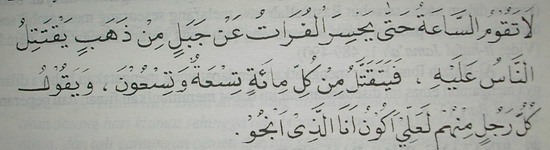 لَا تَقُوْمُ السَّاعَةُ حَتَّى يَحْسِرَ الْفُرَاتُ عَنْ جَبَلٍ مِنْ ذَهَبٍ يَقْتَتِلُ
النَّاسُ عَلَيْهِ ، فَيَتَقَتَّلُ مِنْ كُلِّ مِائَةٍ تِسْعَةٌ وَتِسْعُوْنَ ، وَيَقُوْلُ
كُلُّ رَجُلٍ مِنْهُمْ لَعَلِّيْ اَكُوْنُ اَنَا الَّذِيْ اَنْجُوْ.